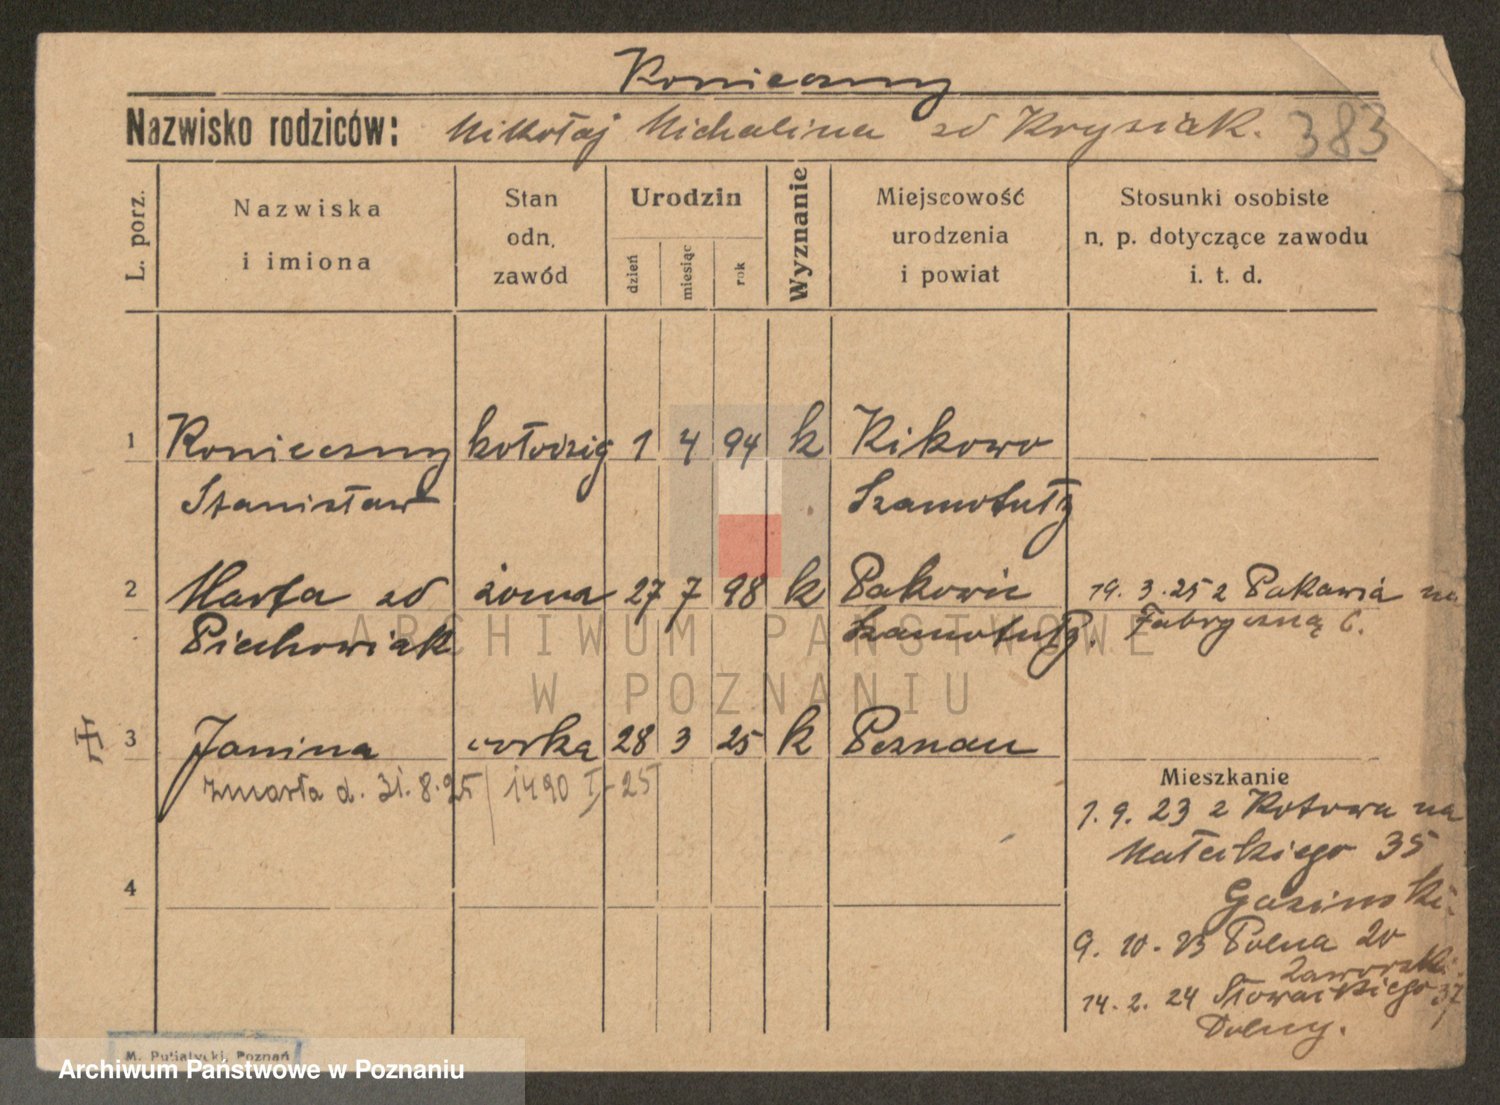 Konieczny
Nazwisko rodziców: Mikołaj Michalina zd Krysiak. 383
L. porz.
Nazwiska
i imiona
Stan
odn.
zawód
Urodzin
dzień
miesiąc
rok
Wyznanie
Miejscowość
urodzenia
i powiat
Stosunki osobiste
n. p. dotyczące zawodu
i. t. d.
1 Konieczny kołodziej 1 4 94 k Kikowo
Stanisław Szamotuły
2 Marta zd żona 27 7 98 k Pakowie 19. 3. 25 z Pakawia na
Piechowiak Szamotuły. Fabryczną 6.
3 Janina córka 28 3 25 k Poznań
zmarła d. 31. 8. 25 / 1490 I - 25
Mieszkanie
1. 9. 23 z Kotowa na
Małeckiego 35
Gasinski.
4
9. 10. 23 Polna 20
Zaworski.
14. 2. 24 Słowackiego 37
Dolny.
ARCHIWUM PAŃSTWOWE
W POZNANIU
M. Putiatycki, Poznań
Archiwum Państwowe w Poznaniu